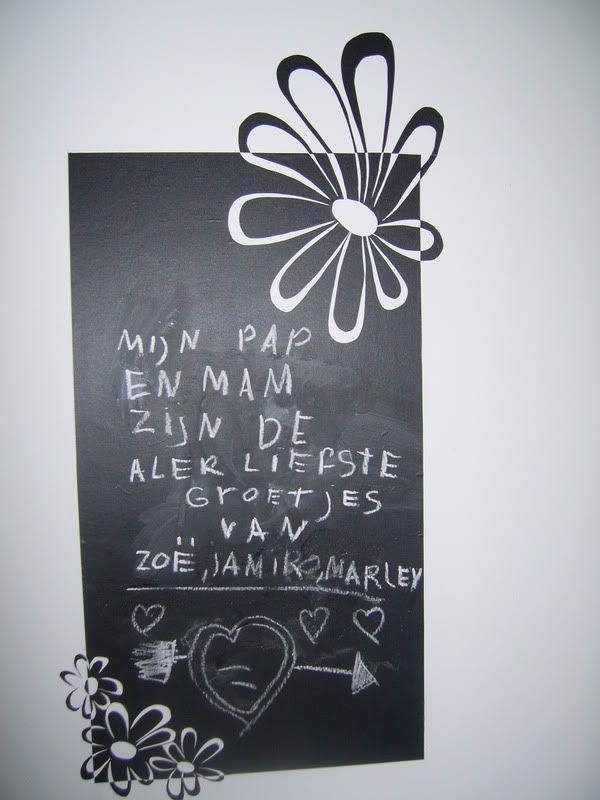 MIJN PAP
EN MAM
ZIJN DE
ALER LIEFSTE
GROETJES
VAN
ZOË, JAMIRO, MARLEY